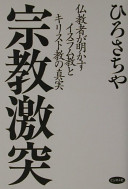 ひろさちや
仏教者が明かす
イスラム教と
キリスト教の真実
宗教激突